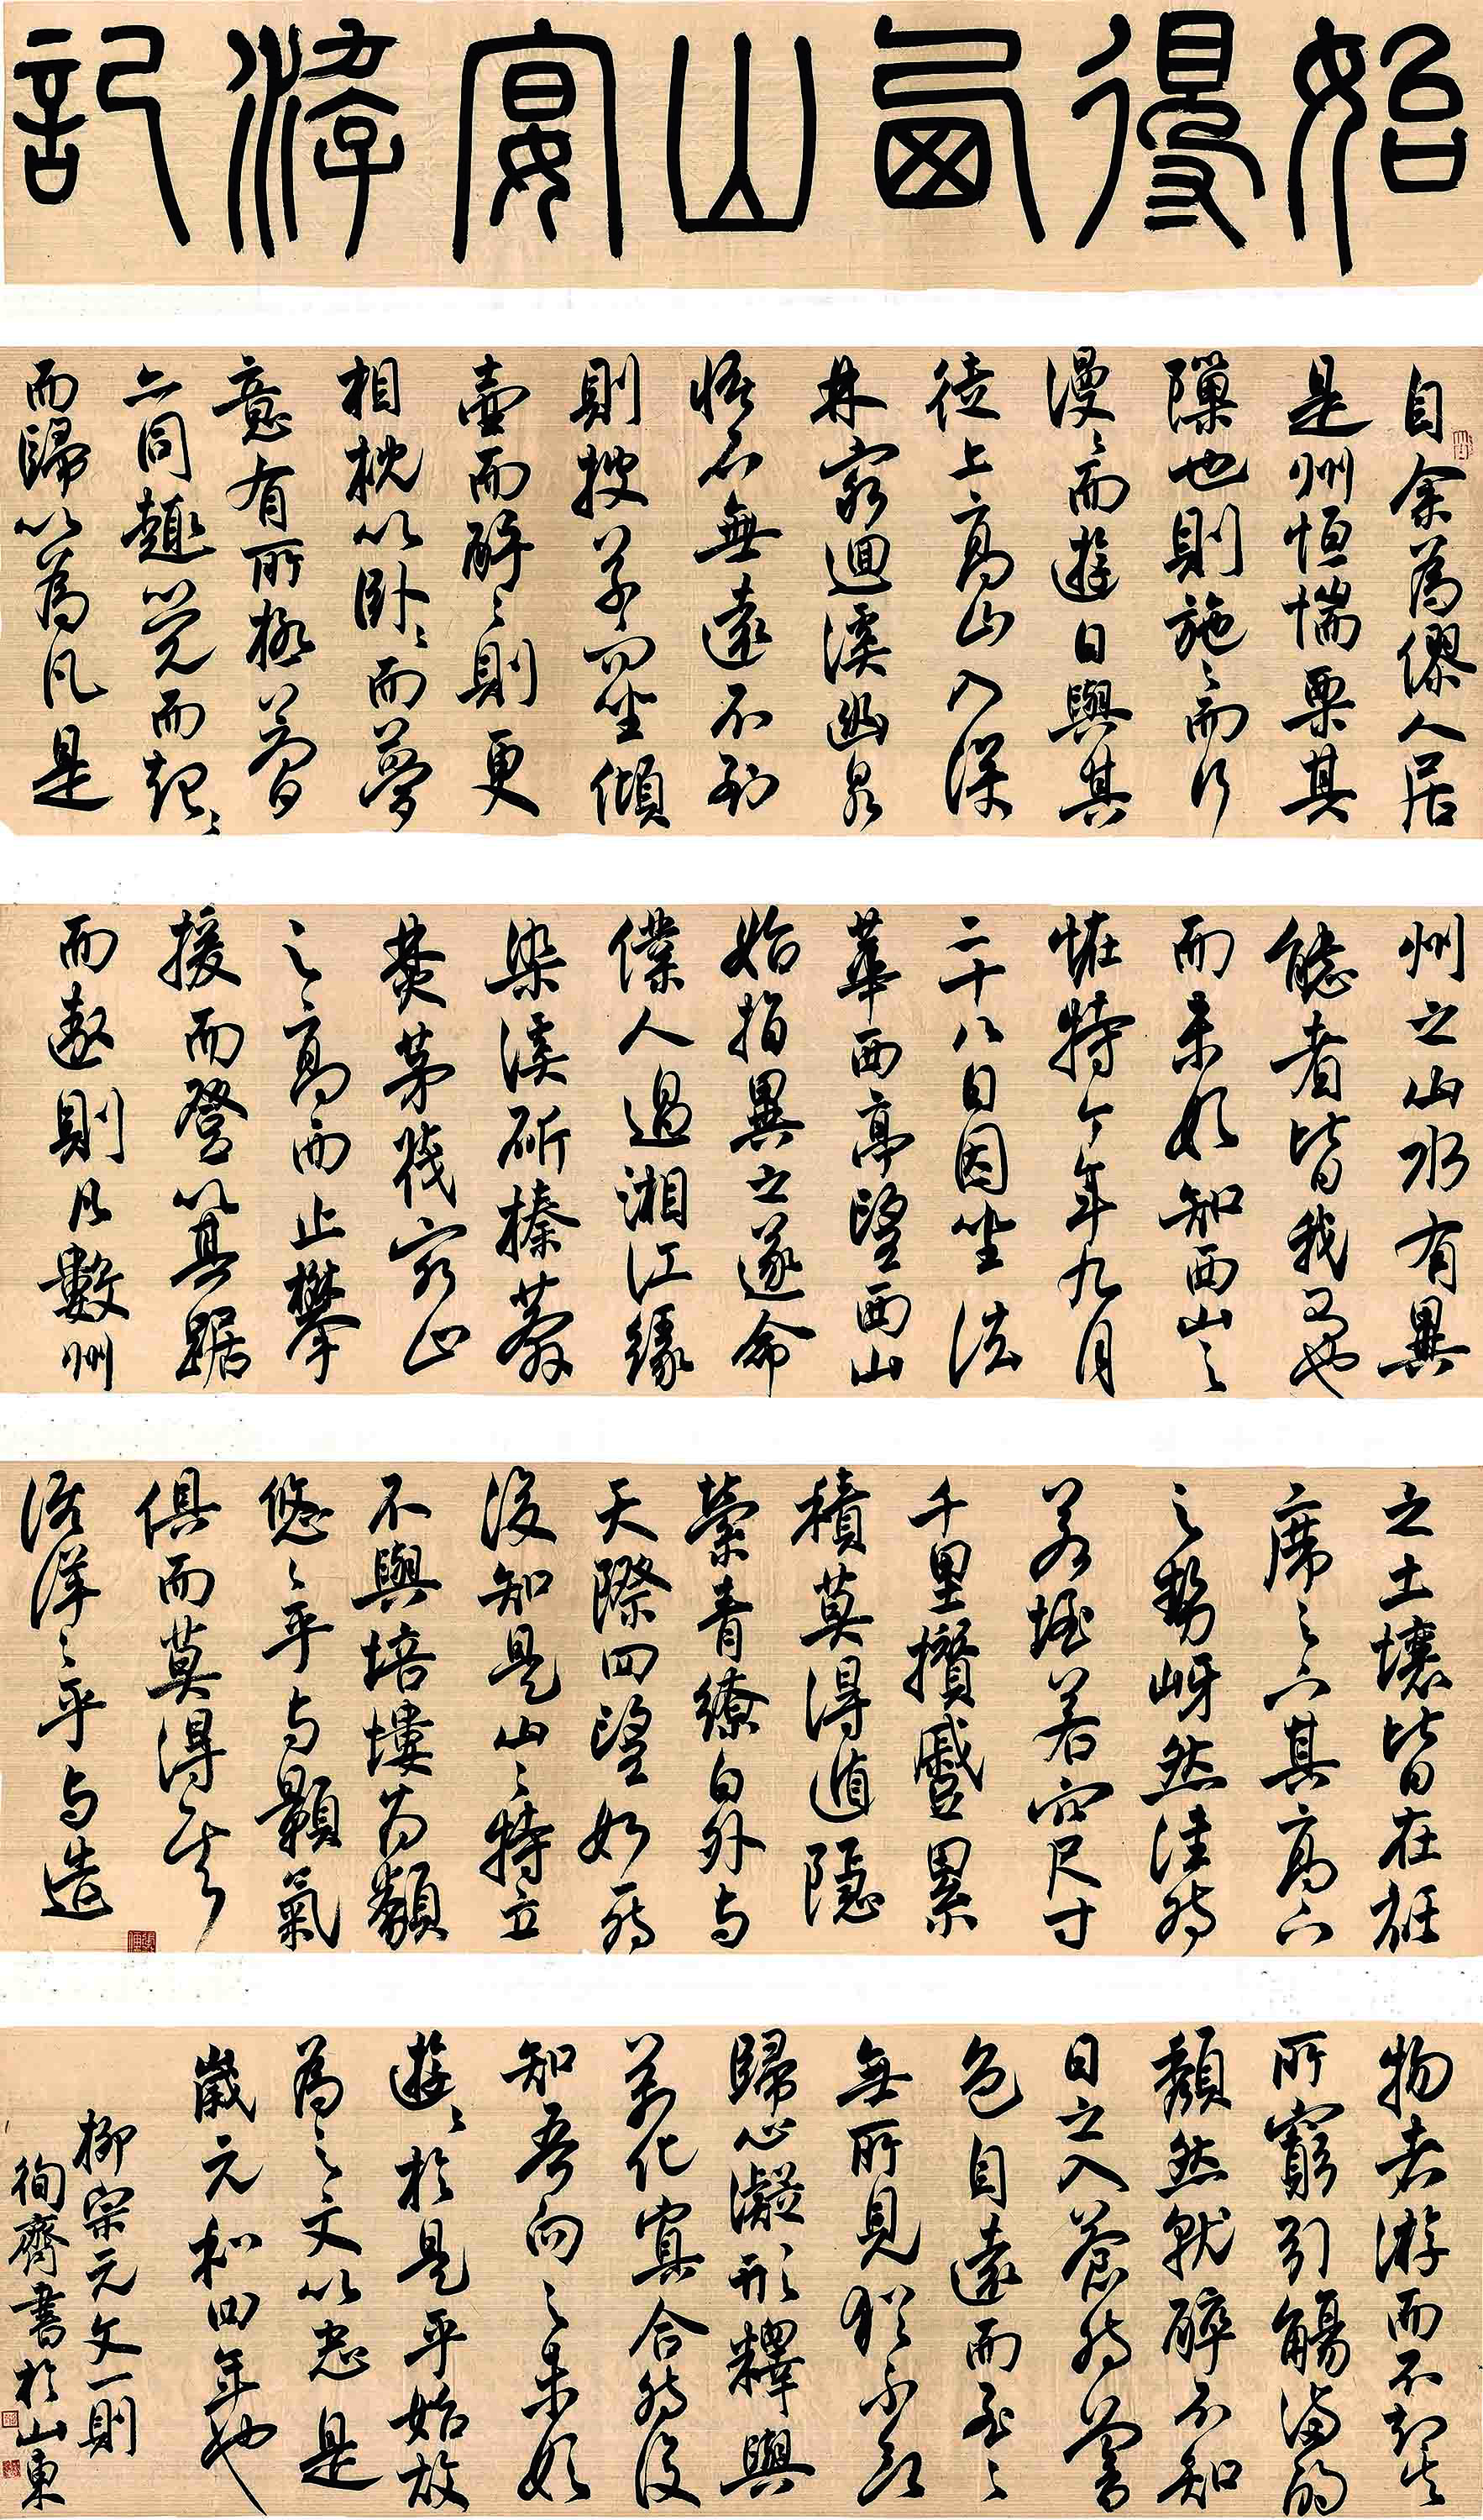 始得西山宴游記
自余為僇人居
是州恒惴栗其
隟也則施〻而行
漫〻而遊日與其
徒上高山入深
林窮迴溪幽泉
怪石無遠不到
則披草而坐傾
壺而醉〻則更
相枕以卧〻而夢
意有所極夢
亦同趣覺而起〻
而歸以為凡是
州之山水有異
態者皆我有也
而未始知西山之
怪特今年九月
二十八日因坐法
華西亭望西山
始指異之遂命
僕人過湘江緣
染溪斫榛莽
焚茅茷窮山
之高而止攀
援而登箕踞
而遨則凡數州
之土壤皆在衽
席之下其高下
之勢岈然洼然
若垤若穴尺寸
千里攢蹙累
積莫得遁隱
縈青繚白外與
天際四望如一然
後知是山之特立
不與培塿為類
悠〻乎與顥氣
俱而莫得其
涯洋〻乎與造
物者游而不知其
所窮引觴滿酌
頹然就醉不知
日之入蒼然暮
色自遠而至〻
無所見猶不欲
歸心凝形釋與
萬化冥合然後
知吾向之未始
遊〻於是乎始故
為之文以志是
歲元和四年也
柳宗元文一則
徇齋書於山東